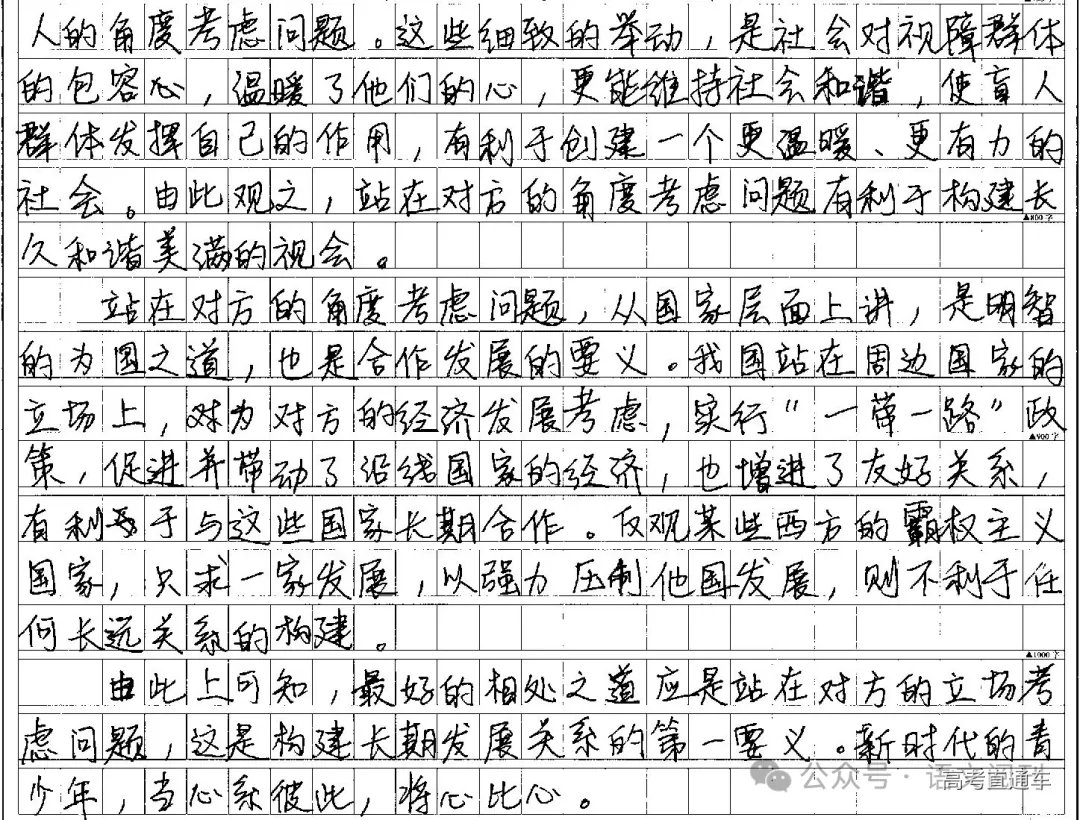 人的角度考虑问题。这些细致的举动，是社会对视障群体
的包容心，温暖了他们的心，更能维持社会和谐，使盲人
群体发挥自己的作用，有利于创建一个更温暖、更有力的
社会。由此观之，站在对方的角度考虑问题有利于构建长
▲800字
久和谐美满的视会。
站在对方的角度考虑问题，从国家层面上讲，是明智
的为国之道，也是合作发展的要义。我国站在周边国家的
立场上，对为对方的经济发展考虑，实行“一带一路”政
▲900字
策，促进并带动了沿线国家的经济，也增进了友好关系，
有利于与这些国家长期合作。反观某些西方的霸权主义
国家，只求一家发展，以强力压制他国发展，则不利于任
何长远关系的构建。
▲1000字
由此上可知，最好的相处之道应是站在对方的立场考
虑问题，这是构建长期发展关系的第一要义。新时代的青
少年，当心系彼此，将心比心。
公众号·语文
高考直通车